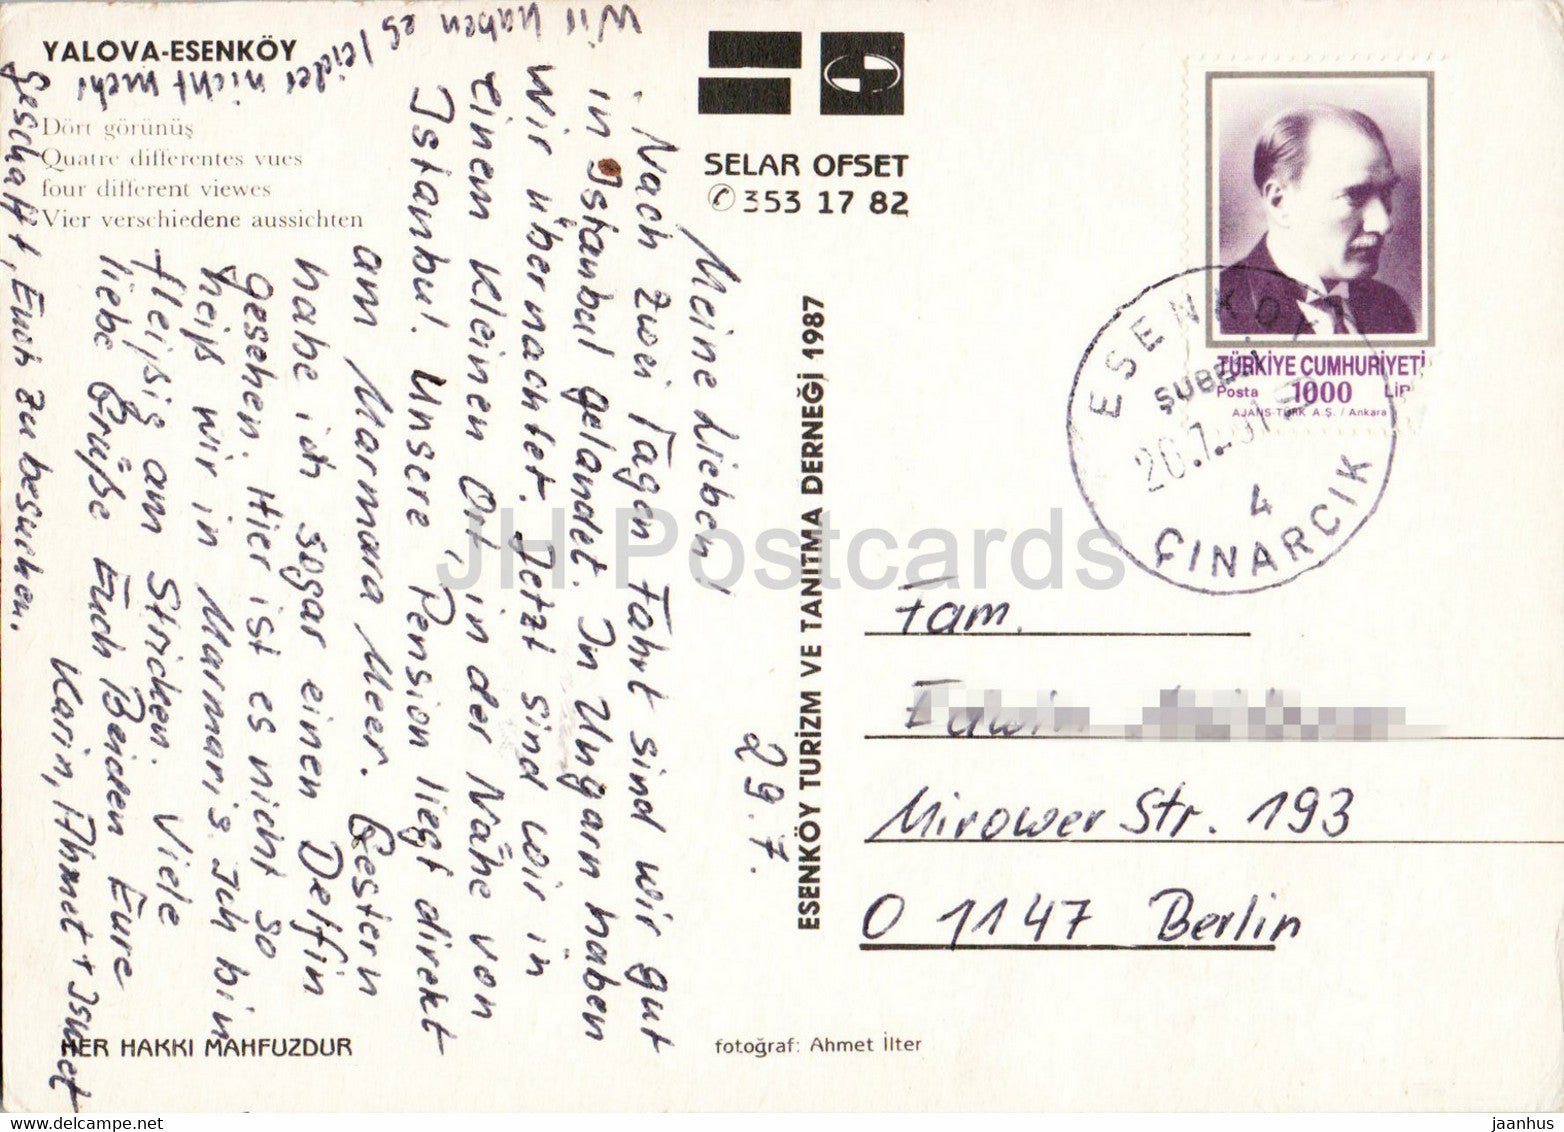 YALOVA-ESENKÖY
Dört görünüş
Quatre differentes vues
four different viewes
Vier verschiedene aussichten
SELAR OFSET
✆ 353 17 82
ESENKÖY TURİZM VE TANITMA DERNEĞİ 1987
HER HAKKI MAHFUZDUR
fotoğraf: Ahmet İlter
29.7.
Meine Lieben!
Nach zwei Tagen Fahrt sind wir gut
in Istanbul gelandet. In Ungarn haben
wir übernachtet. Jetzt sind wir in
einem kleinen Ort, in der Nähe von
Istanbul. Unsere Pension liegt direkt
am Marmara Meer. Gestern
habe ich sogar einen Delfin
gesehen. Hier ist es nicht so
heiß wir in Marmaris. Ich bin
fleißig am Stricken. Viele
liebe Grüße Euch Beiden Eure
Karin, Ahmet + Ismet
Wir haben es leider nicht mehr
geschafft, Euch zu besuchen.
TÜRKİYE CUMHURİYETİ
Posta 1000 LİR
AJANS-TÜRK A.Ş. / Ankara
ESENKÖY
ŞUBESİ
20.7
4
ÇINARCIK
Fam.
Edwin
Mirower Str. 193
O 1147 Berlin
JH Postcards
jaanhus